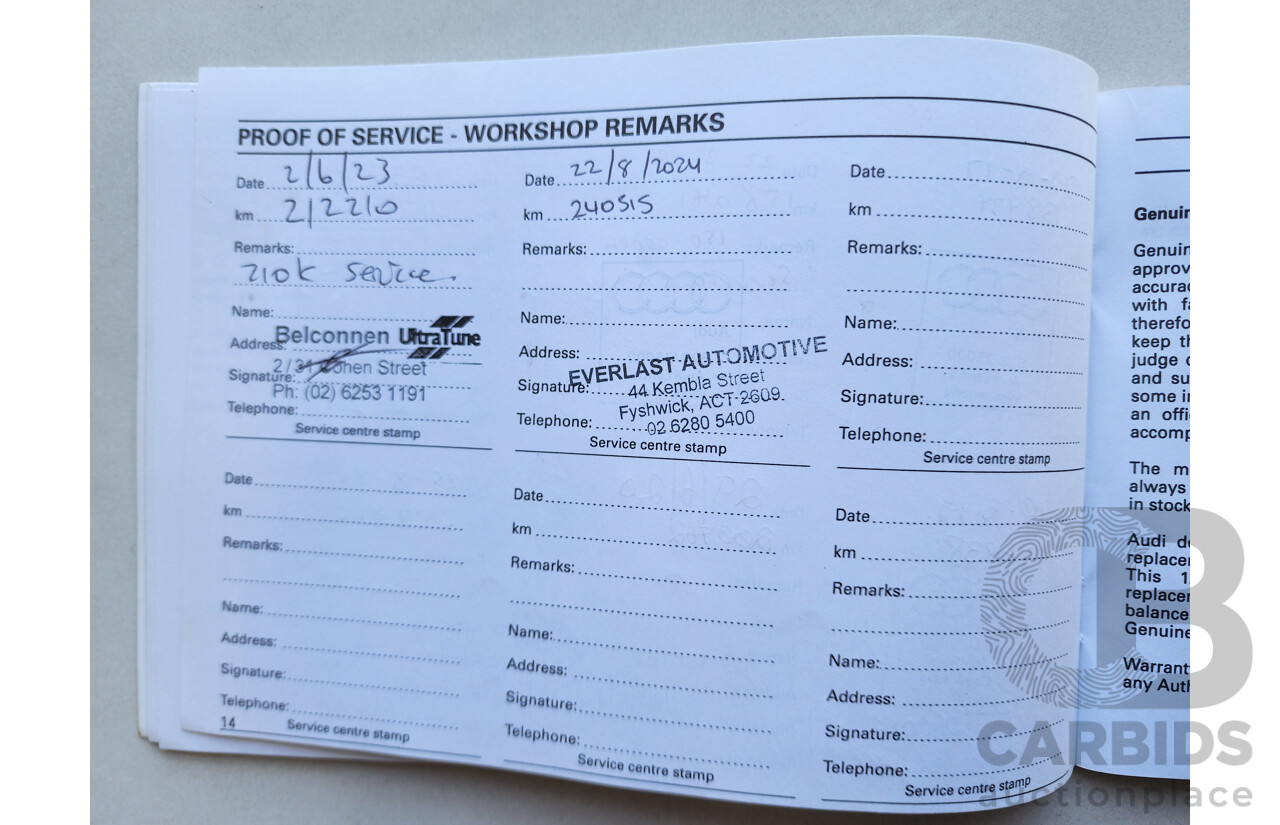 PROOF OF SERVICE - WORKSHOP REMARKS
Date 2/6/23
km 212210
Remarks:
210k Service.
Name:
Belconnen UltraTune
Address:
2/31 Cohen Street
Signature:
Ph: (02) 6253 1191
Telephone:
Service centre stamp
Date 22/8/2024
km 240515
Remarks:
Name:
Address:
EVERLAST AUTOMOTIVE
Signature:
44 Kembla Street
Fyshwick, ACT 2609
Telephone:
02 6280 5400
Service centre stamp
Date
km
Remarks:
Name:
Address:
Signature:
Telephone:
Service centre stamp
Date
km
Remarks:
Name:
Address:
Signature:
Telephone:
Service centre stamp
14
Date
km
Remarks:
Name:
Address:
Signature:
Telephone:
Service centre stamp
Date
km
Remarks:
Name:
Address:
Signature:
Telephone:
Service centre stamp
Genuin
Genuin
approv
accurac
with fa
therefo
keep th
judge o
and su
some in
an offi
accomp
The m
always
in stock
Audi de
replacer
This 1
replacer
balance
Genuine
Warrant
any Auth
CB
CARBIDS
auctionplace